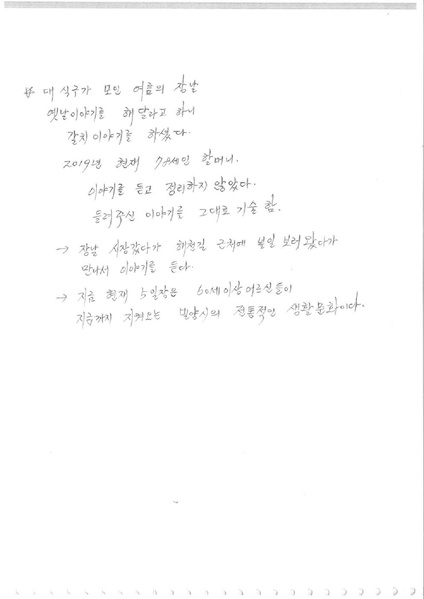 # 대 식구가 모인 여름의 장날
옛날이야기를 해달라고 하니
갈치이야기를 하셨다.
2019년 현재 78세인 할머니.
이야기를 듣고 정리하지 않았다.
들려주신 이야기를 그대로 기술 함.
→ 장날 시장갔다가 해천길 근처에 볼일 보러 왔다가
만나서 이야기를 듣다.
→ 지금 현재 5일장은 60세이상어르신들이
지금까지 지켜오는 밀양시의 전통적인 생활문화이다.